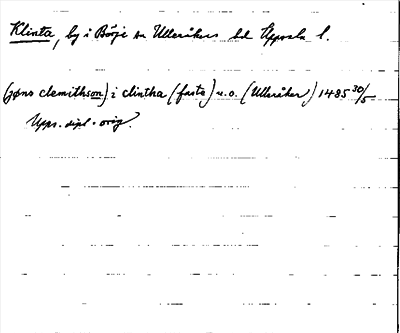 Klinta, by i Börje sn Ulleråkers hd Uppsala l.
(jøns clemithson) i clintha (fasta) u.o. (Ulleråker) 1485 30/5
Upps. dipl. orig.